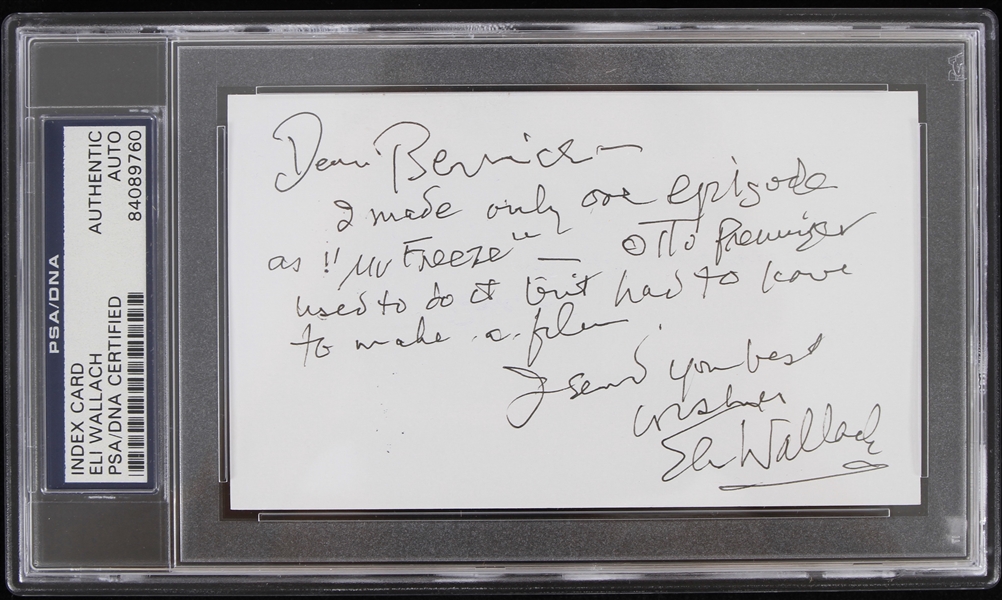 PSA/DNA
INDEX CARD
ELI WALLACH
PSA/DNA CERTIFIED
AUTHENTIC
AUTO
84089760
Dear Bernice —
I made only one episode
as "Mr Freeze" — Otto Preminger
used to do it but had to leave
to make a film.
I send you best
wishes
Eli Wallach